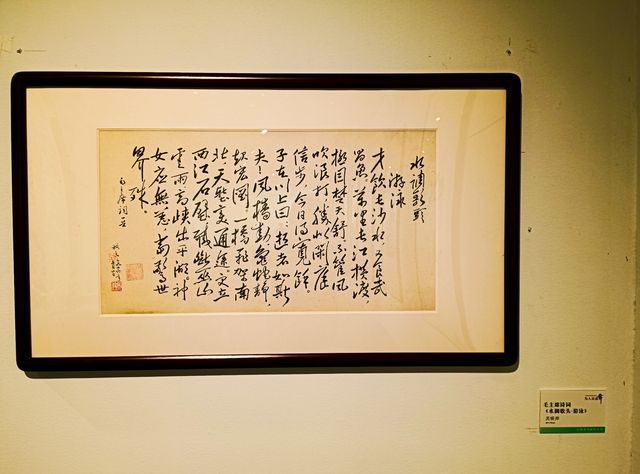 水調歌頭
游泳
才飲長沙水,又食武
昌魚。萬里長江橫渡,
極目楚天舒。不管風
吹浪打,勝似閑庭
信步,今日得寬餘。
子在川上曰:逝者如斯
夫!風檣動,龜蛇靜,
起宏圖。一橋飛架南
北,天塹變通途。更立
西江石壁,截斷巫山
雲雨,高峽出平湖。神
女應無恙,當驚世
界殊。
毛主席詞
毛主席诗词
《水调歌头·游泳》